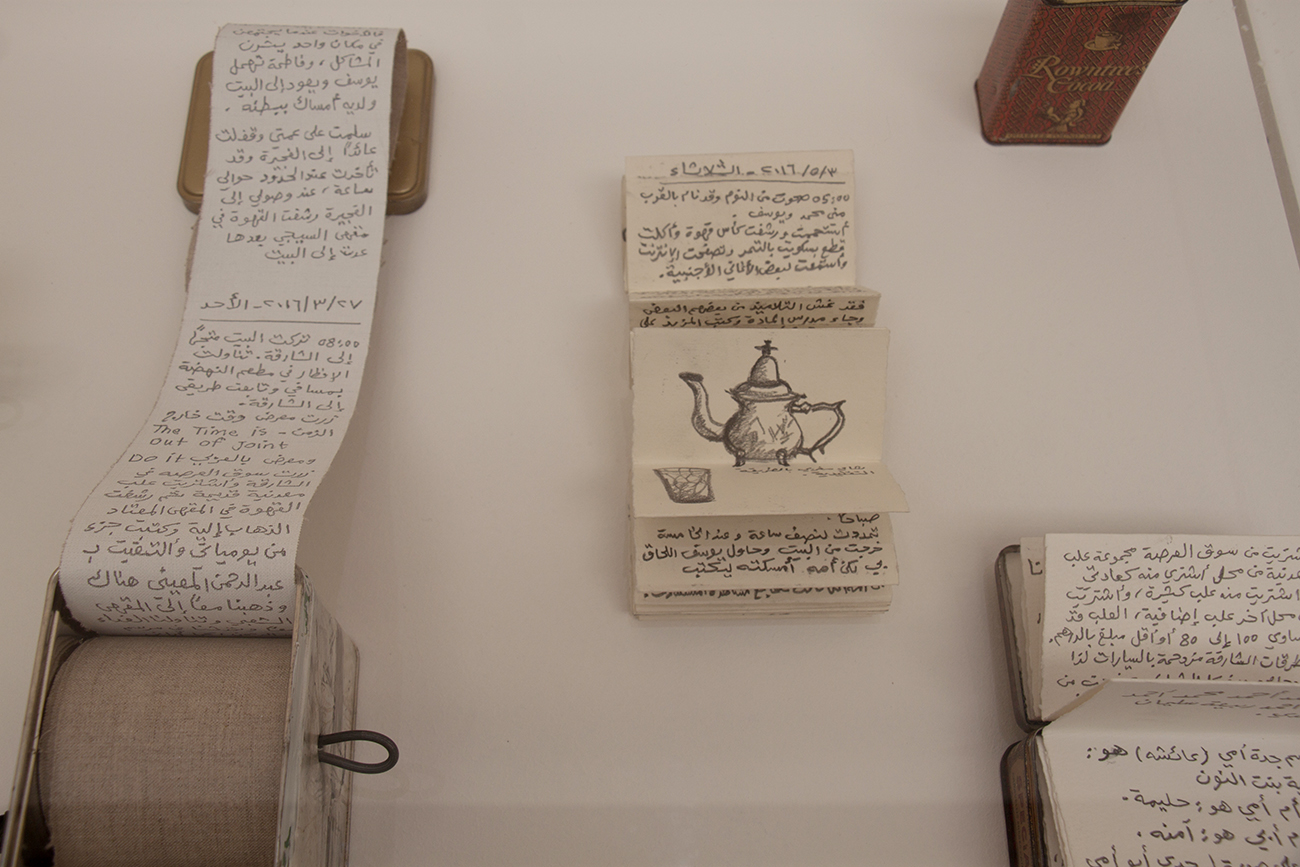 في مكان واحد يثيرن
المشاكل، وفاطمة تهمل
يوسف ويعود إلى البيت
ولديه أمساك ببطنه.
سلمت على عمتي وقفلت
عائداً إلى الفجيرة وقد
تأخرت عند الحدود حوالي
ساعة، عند وصولي إلى
الفجيرة رشفت القهوة في
مقهى السيجي بعدها
عدت إلى البيت
٢٠١٦/٣/٢٧ - الأحد
08:00 تركت البيت متجهاً
إلى الشارقة. تناولت
الإفطار في مطعم النهضة
بمسافي وتابعت طريقي
إلى الشارقة.
زرت معرض وقت خارج
الزمن - The Time is
Out of Joint
ومعرض بالعربي Do it
زرت سوق العرصة في
الشارقة وأشتريت علب
معدنية قديمة ثم رشفت
القهوة في المقهى المعتاد
الذهاب إليه وكتبت جزء
من يومياتي وألتقيت بـ
عبدالرحمن المعيني هناك
وذهبنا معاً إلى المقهى
الشعبي وتناولنا الغداء
Rowntree's
Cocoa
٢٠١٦/٥/٣ - الثلاثاء
05:00 صحوت من النوم وقد نام بالقرب
مني محمد ويوسف.
أستحممت ورشفت كأس قهوة وأكلت
قطع بسكويت بالتمر وتصفحت الإنترنت
وأستمعت لبعض الأغاني الأجنبية.
فقد غش التلاميذ من بعضهم البعض
وجاء مدرس المادة وكتب المزيد على
صباحاً.
تمددت لنصف ساعة وعند الخامسة
خرجت من البيت وحاول يوسف اللحاق
بي لكن أمه أمسكته ليكتب
من سوق العرصة مجموعة علب
معدنية من محل أشتري منه كعادتي
اشتريت منه علب كثيرة، وأشتريت
محل آخر علب إضافية، العلب قد
100 إلى 80 أو أقل مبلغ بالدرهم.
طرقات الشارقة مزدحمة بالسيارات لذا
أحمد محمد أحمد
سليمان
جدة أمي (عائشة) هو:
بنت النون
أم أمي هو: حليمة.
أم أبي هو: آمنه.